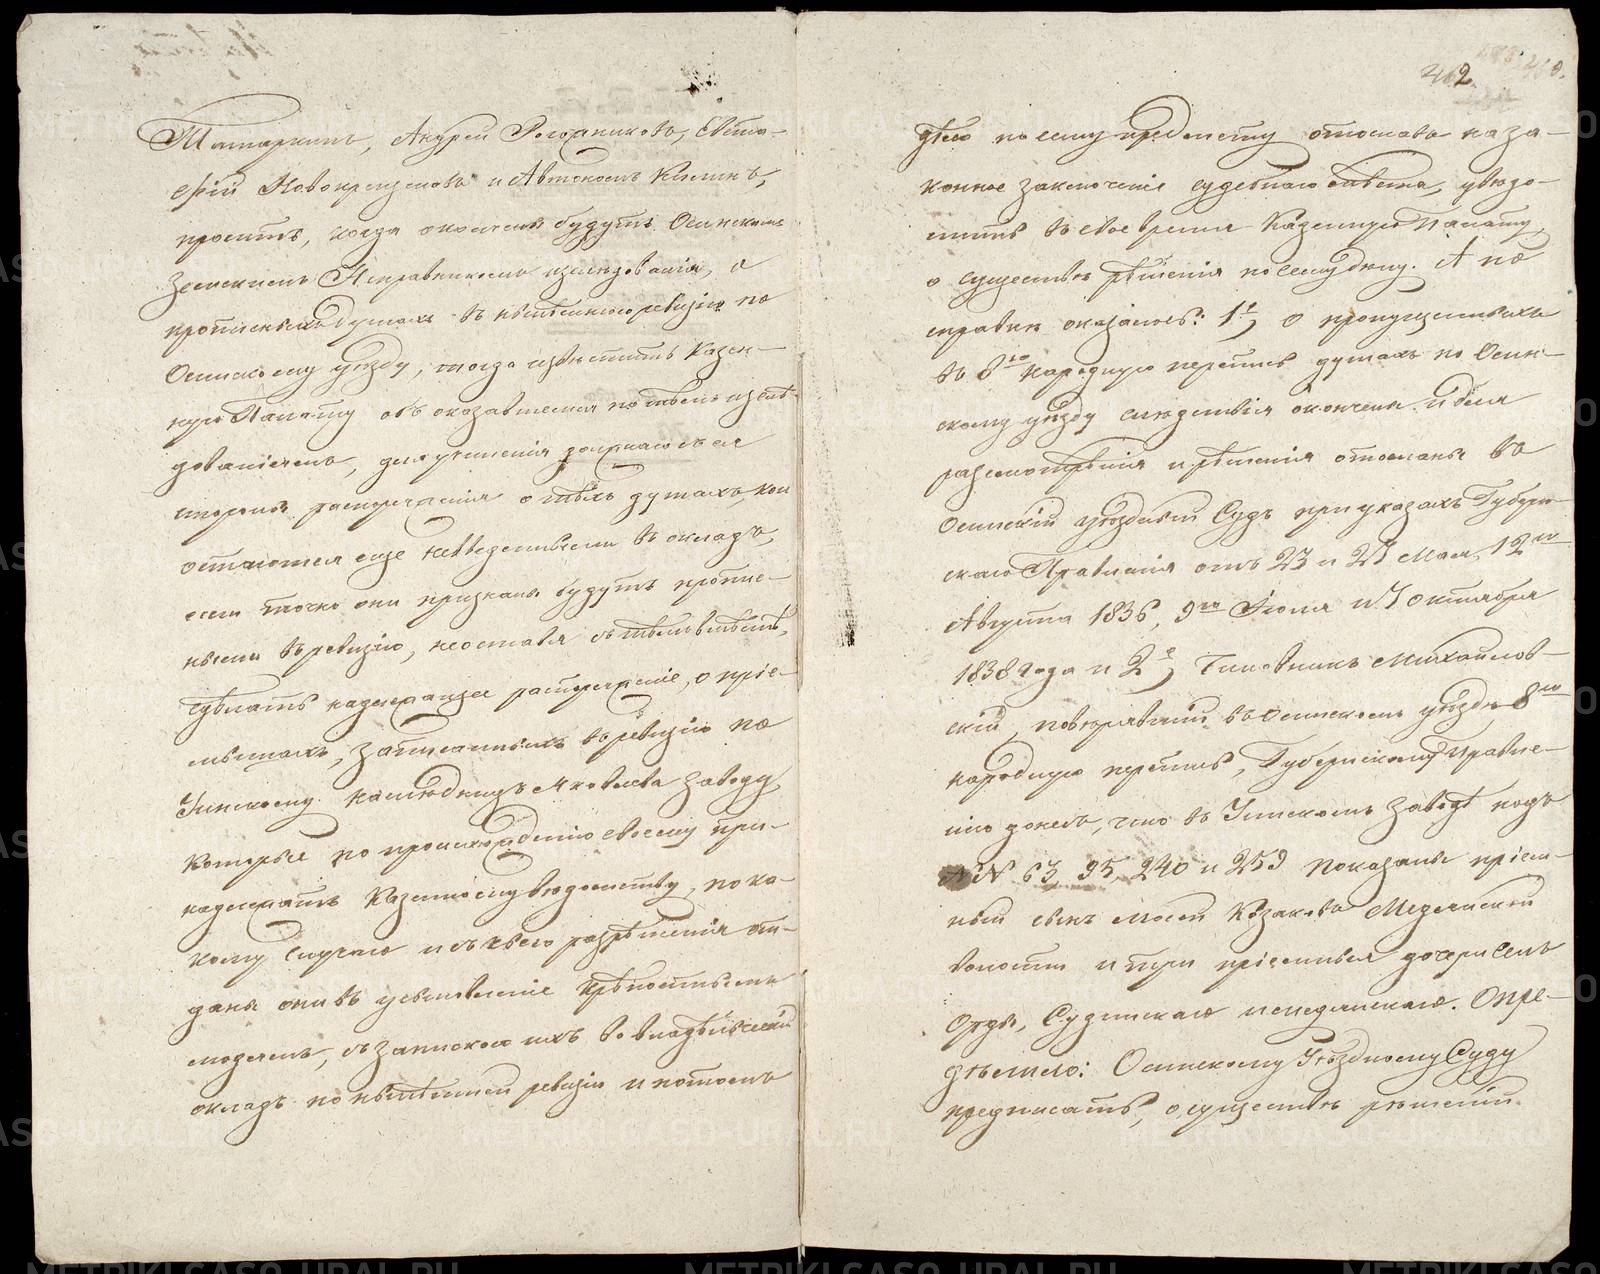 Татаркинъ, Андрей Рогожниковъ, Евста-
фій Новокрещеновъ и Автономъ Килинъ,
проситъ, когда окончены будутъ Осинскимъ
Земскимъ Исправникомъ изследованія, о
прописныхъ душахъ въ нынѣшнюю ревизію по
Осинскому уѣзду, тогда извѣстить Казен-
ную Палату объ оказавшемся по тѣмъ изслѣ-
дованіямъ, для учиненія должнаго съ ея
стороны распоряженія о тѣхъ душахъ, кои
останутся еще невведенными въ окладъ,
если точно они признаны будутъ пропис-
ными въ ревизію, неоставя съ тѣмъ вмѣстѣ,
сдѣлать надлежащее распоряженіе, о пріе-
мышахъ, записанныхъ въ ревизію по
Уинскому наслѣдницъ Яковлева заводу,
которые по происхожденію своему при-
надлежатъ Казенному вѣдомству, по ка-
кому случаю и съ чьего разрѣшенія от-
даны они въ усыновленіе крѣпостнымъ
людямъ, съ запискою ихъ во владѣльческій
окладъ по нынѣшней ревизіи и потомъ
462
дѣло по сему предмету отославъ на за-
конное заключеніе судебнаго мѣста, увѣдо-
мить въ свое время Казенную Палату,
о существѣ рѣшенія по сему дѣлу. А по
справкѣ оказалось: 1е, о пропущенныхъ
въ 8ю народную перепись душахъ по Осин-
скому уѣзду слѣдствія окончены и для
разсмотрѣнія и рѣшенія отосланы въ
Осинскій уѣздный Судъ при указахъ Губерн-
скаго Правленія отъ 23 и 25 Мая, 12го
Августа 1836, 9го Іюня и 7 октября
1838 года и 2е, Чиновникъ Михайлов-
скій, повѣрявшій въ Осинскомъ уѣздѣ 8ю
народную перепись, Губернскому Правле-
нію донесъ, что въ Уинскомъ заводѣ подъ
NN 63, 95, 240 и 259 показаны пріем-
ный сынъ Моисей Козаковъ Медянской
волости и три пріемныя дочери селъ
Орды, Судинскаго и Медянскаго. Опре-
дѣлило: Осинскому Уѣздному Суду
предписать, о существѣ рѣшеній